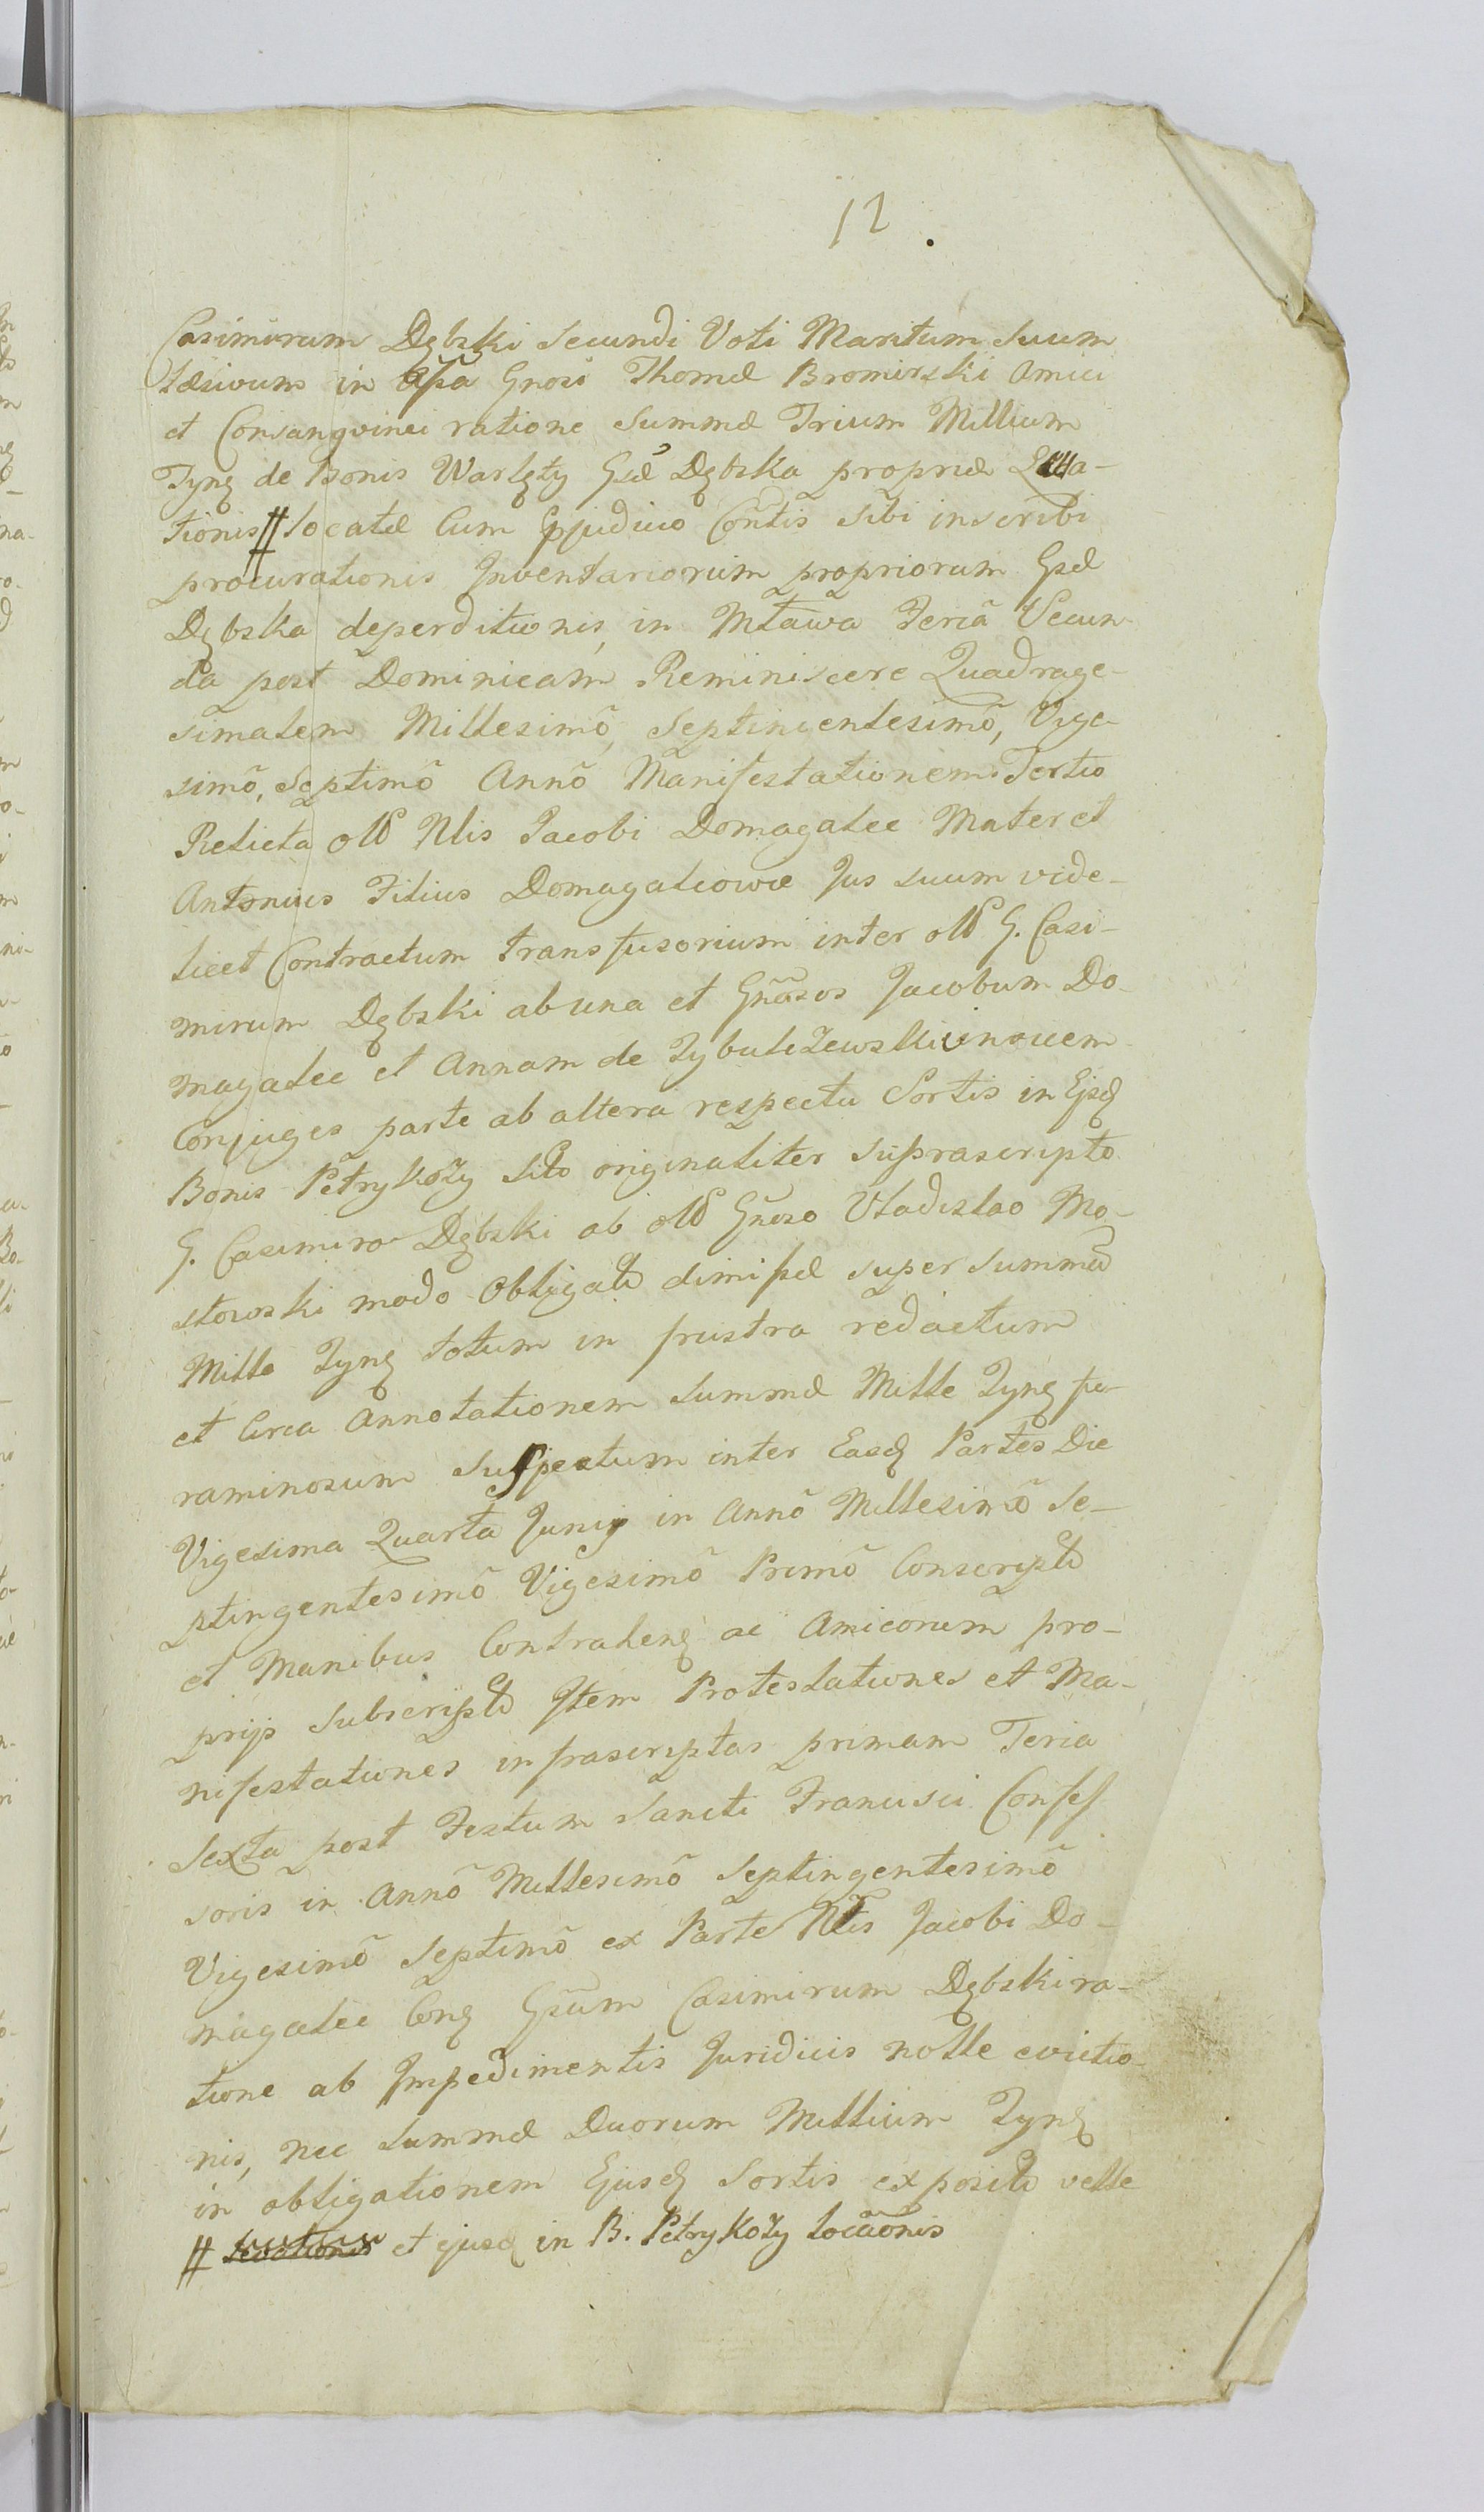 12.
Casimirum Dębski Secundi Voti Maritum Suum
læsivum in Assa Gnosi Thomæ Bromirski Amici
et Consangvinei ratione Summæ Trium Millium
Tynf de Bonis Warlęty Gsæ Dębska propriæ
tionis # locatæ Cum Ppjudicio Contis sibi inscribi
procurationis Inventariorum propriorum Gsæ
Dębska deperditionis, in Mława Feriã Secun-
da post Dominicam Reminiscere Quadrage-
simalem Millesimõ, Septincentesimõ, Vige
simõ, Septimõ Annõ Manifestationem Tertio
Relicta olῖ Nlis Jacobi Domagalec Mater et
Antonius Filius Domagalicowie Jus suum vide-
licet Contractum transfusorium inter olῖ G. Casi-
mirum Dębski ab una et Gnãsos Jacobum Do-
magalec et Annam de Zybuliżewski invicem
Conjuges parte ab altera respectu Sortis in Ejsđ
Bonis Petrykozy sito originaliter suprascripto
G. Casimiro Dębski ab olῖ Gnoso Vladislao Mo-
stowski modo Obligato dimissæ super summã
Mille Tynf totum in frustra redactum
et Circa Annotationem summæ Mille Tynf fo-
raminosum Suspectum inter Easđ Partes Die
Vigesima Quarta Junij in Annõ Millesimõ Se-
ptingentesimõ Vigesimõ Primõ Conscripto
et Manibus Contrahenđ ac Amicorum pro-
prijs Subscripto Item Protestationes et Ma-
nifestationes infrascriptas primam Feria
Sexta post Festum Sancti Francisci Confes
soris in Annõ Millesimõ Septingentesimõ
Vigesimõ Septimõ ex Parte Nlis Jacobi Do-
magalec Conę Gsum Casimirum Dębski ra-
tione ab Impedimentis Juridicis nolle evictio
nis, nec Summæ Duorum Millium Tynf
in obligationem Ejusđ Sortis exposito velle
# et ejusđ in B. Petrykozy locãonis